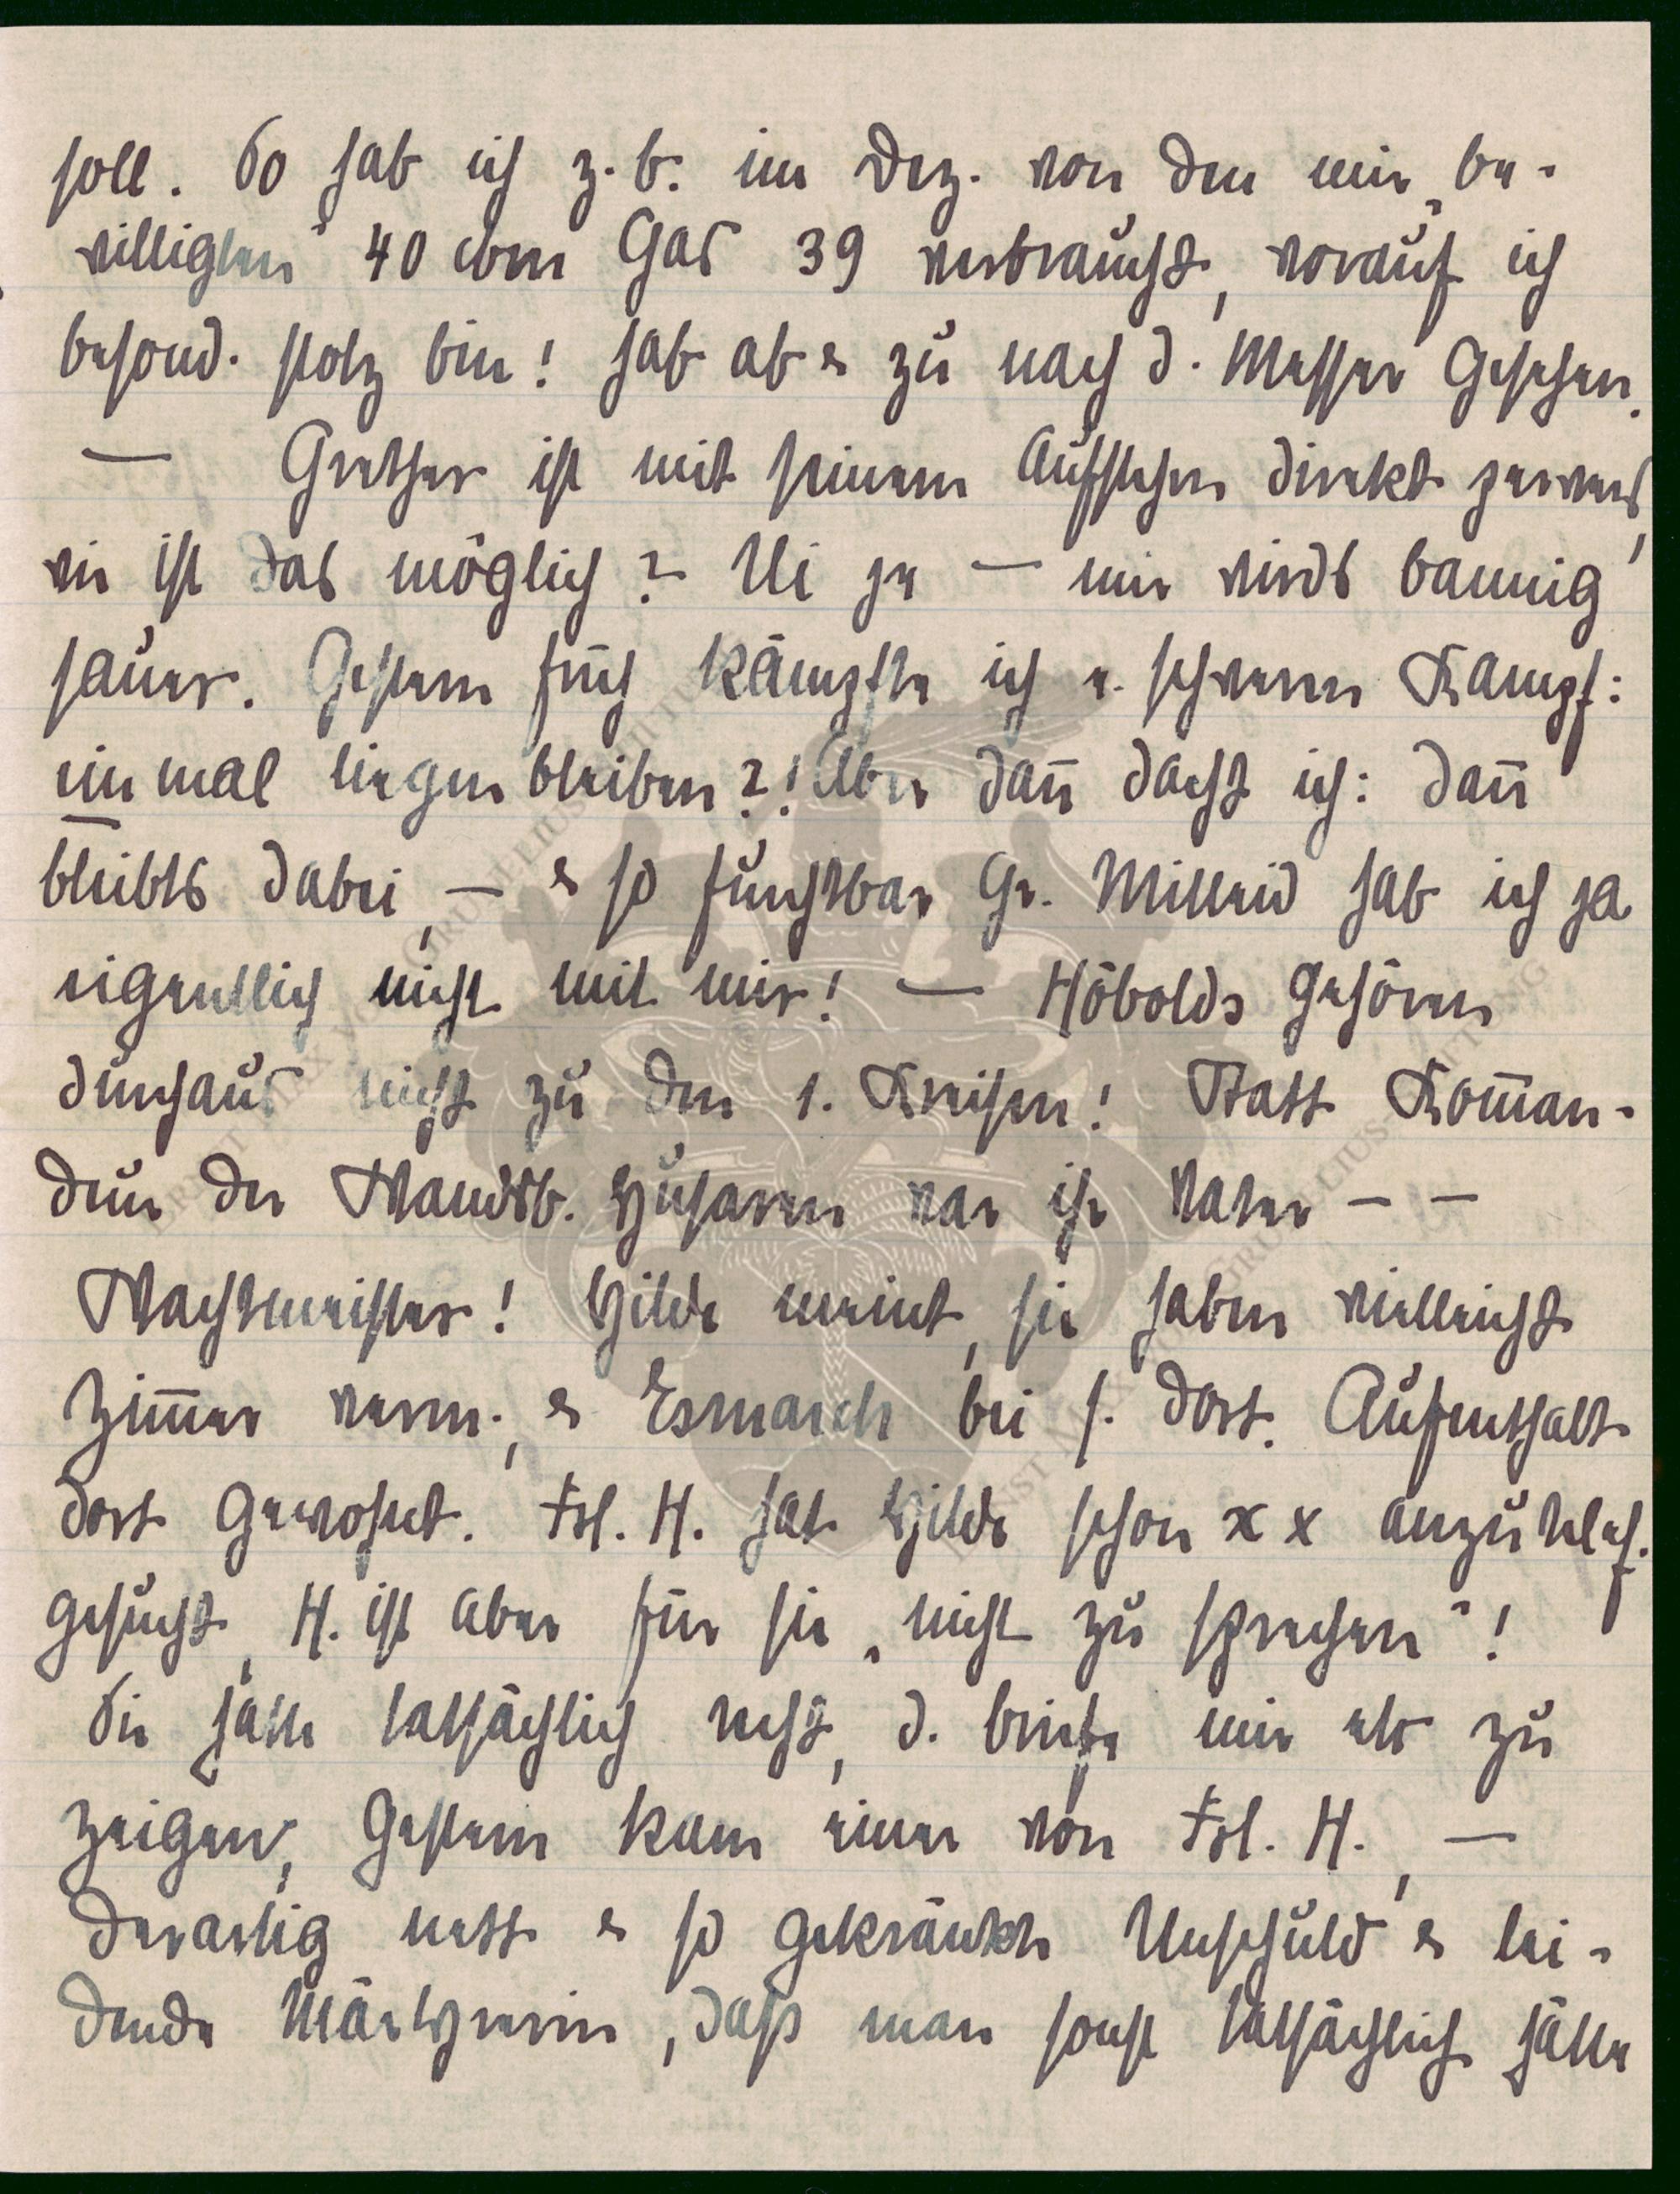 soll. So hab ich z. b. im Dez. von den mir „be-
willigten“ 40 cbm Gas 39 verbraucht, worauf ich
besond. stolz bin! Hab ab u. zu nach d. Messer gesehen.
— Grether ist mit seinem Aufstehen direkt pervers,
wie ist das möglich? Ui je — mir wirds bannig
sauer. Gestern früh kämpfte ich e. schweren Kampf:
ein mal liegen bleiben?! Aber dann dacht ich: dann
bleibts dabei, — u. so furchtbar gr. Mitleid hab ich ja
eigentlich nicht mit mir! — Höbolds gehören
durchaus nicht zu den 1. Kreisen! Statt Komman-
deur der Wandsb. Husaren war ihr Vater — —
Wachtmeister! Hilde meint, sie haben vielleicht
Zimmer verm., u. Esmarch bei s. dort. Aufenthalt
dort gewohnt. Frl. H. hat Hilde schon x x anzuteleph.
gesucht, H. ist aber für sie „nicht zu sprechen“!
Sie hätte tatsächlich recht, d. Briefe mir etc zu
zeigen, gestern kam einer von Frl. H., —
derartig nett u. so gekränkte Unschuld u. lei-
dende Märtyrerin, daß man sonst tatsächlich hätte